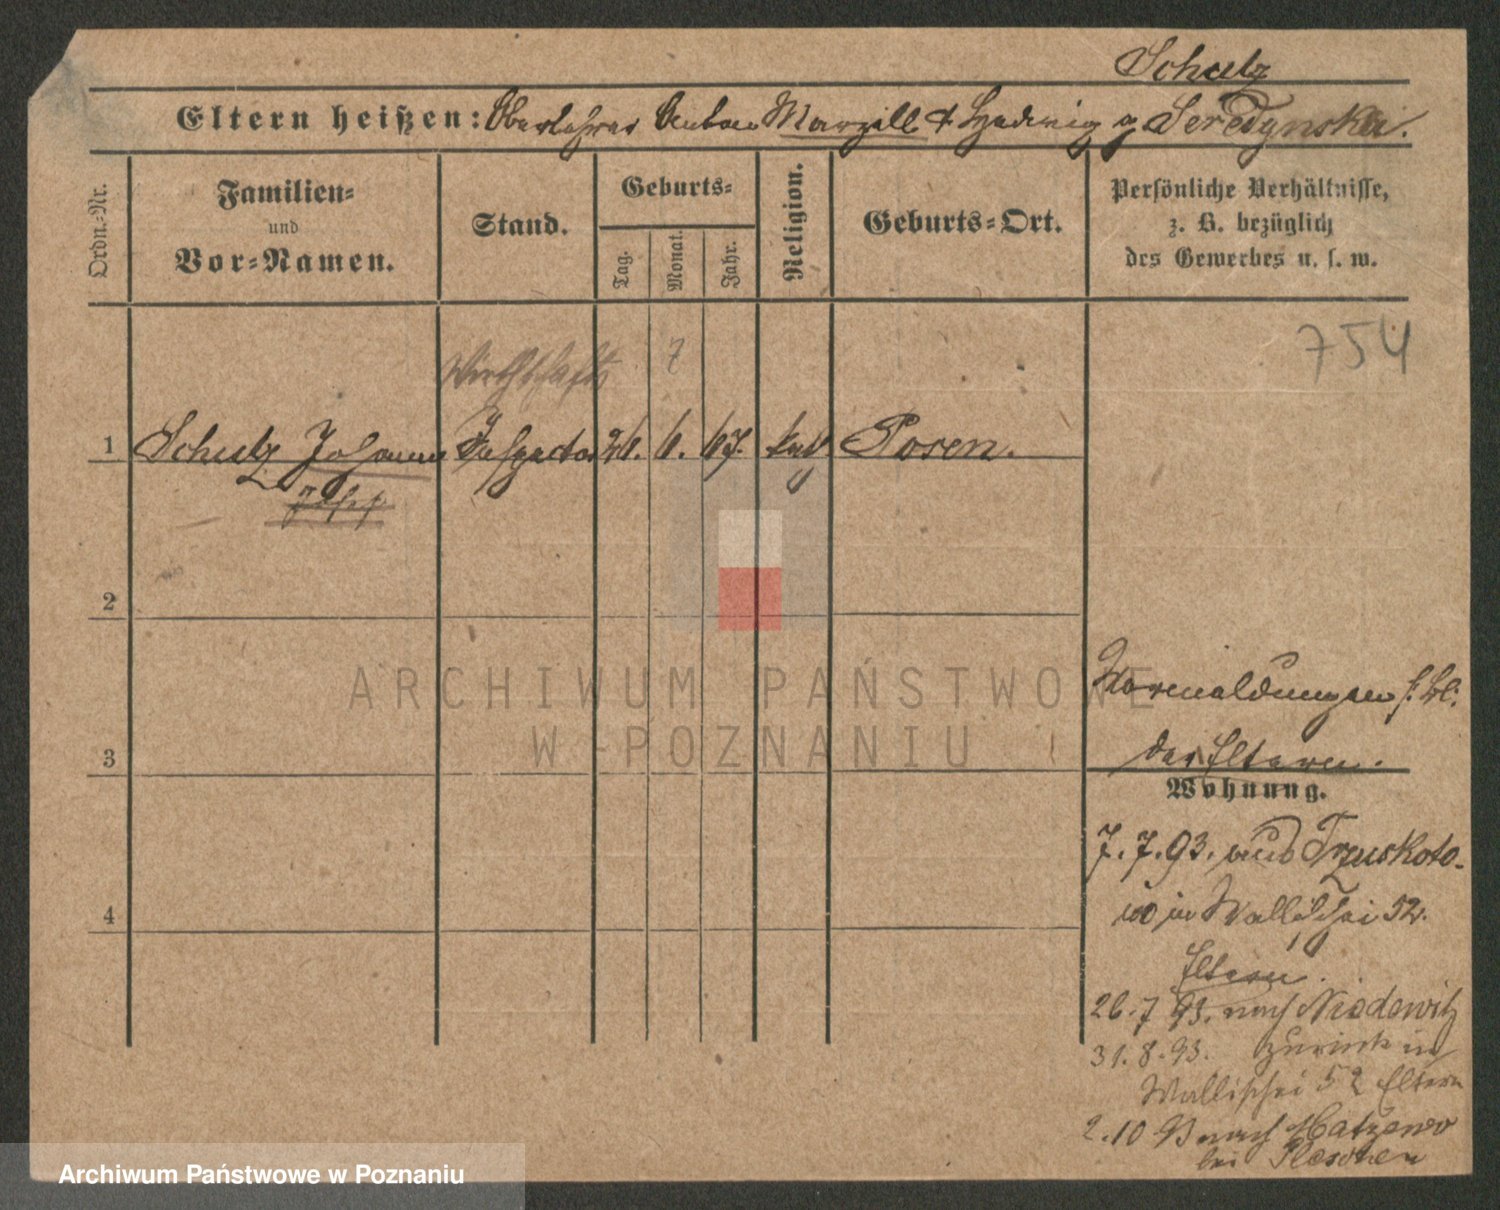 Schulz
Eltern heißen: Oberlehrer Anton Marzell & Hedwig g Seredynska.
Ordn.-Nr.
Familien- und Vor-Namen.
Stand.
Geburts-
Tag.
Monat.
Jahr.
Religion.
Geburts-Ort.
Persönliche Verhältnisse,
z. B. bezüglich
des Gewerbes u. s. w.
754
Wirthschafts 7
1 Schulz Johann Inspector 26. 6. 67. kath Posen.
Josef
2
3
4
Vormeldungen s. bl.
der Eltern.
Wohnung.
7. 7. 93. aus Trzuskoto-
wo in Wallischei 52.
Eltern.
26. 7 93. nach Niedewitz
31. 8. 93. zurück in
Wallischei 52 Eltern
2. 10 93 nach Katzewo
bei Pleschen
ARCHIWUM PAŃSTWOWE
W POZNANIU
Archiwum Państwowe w Poznaniu